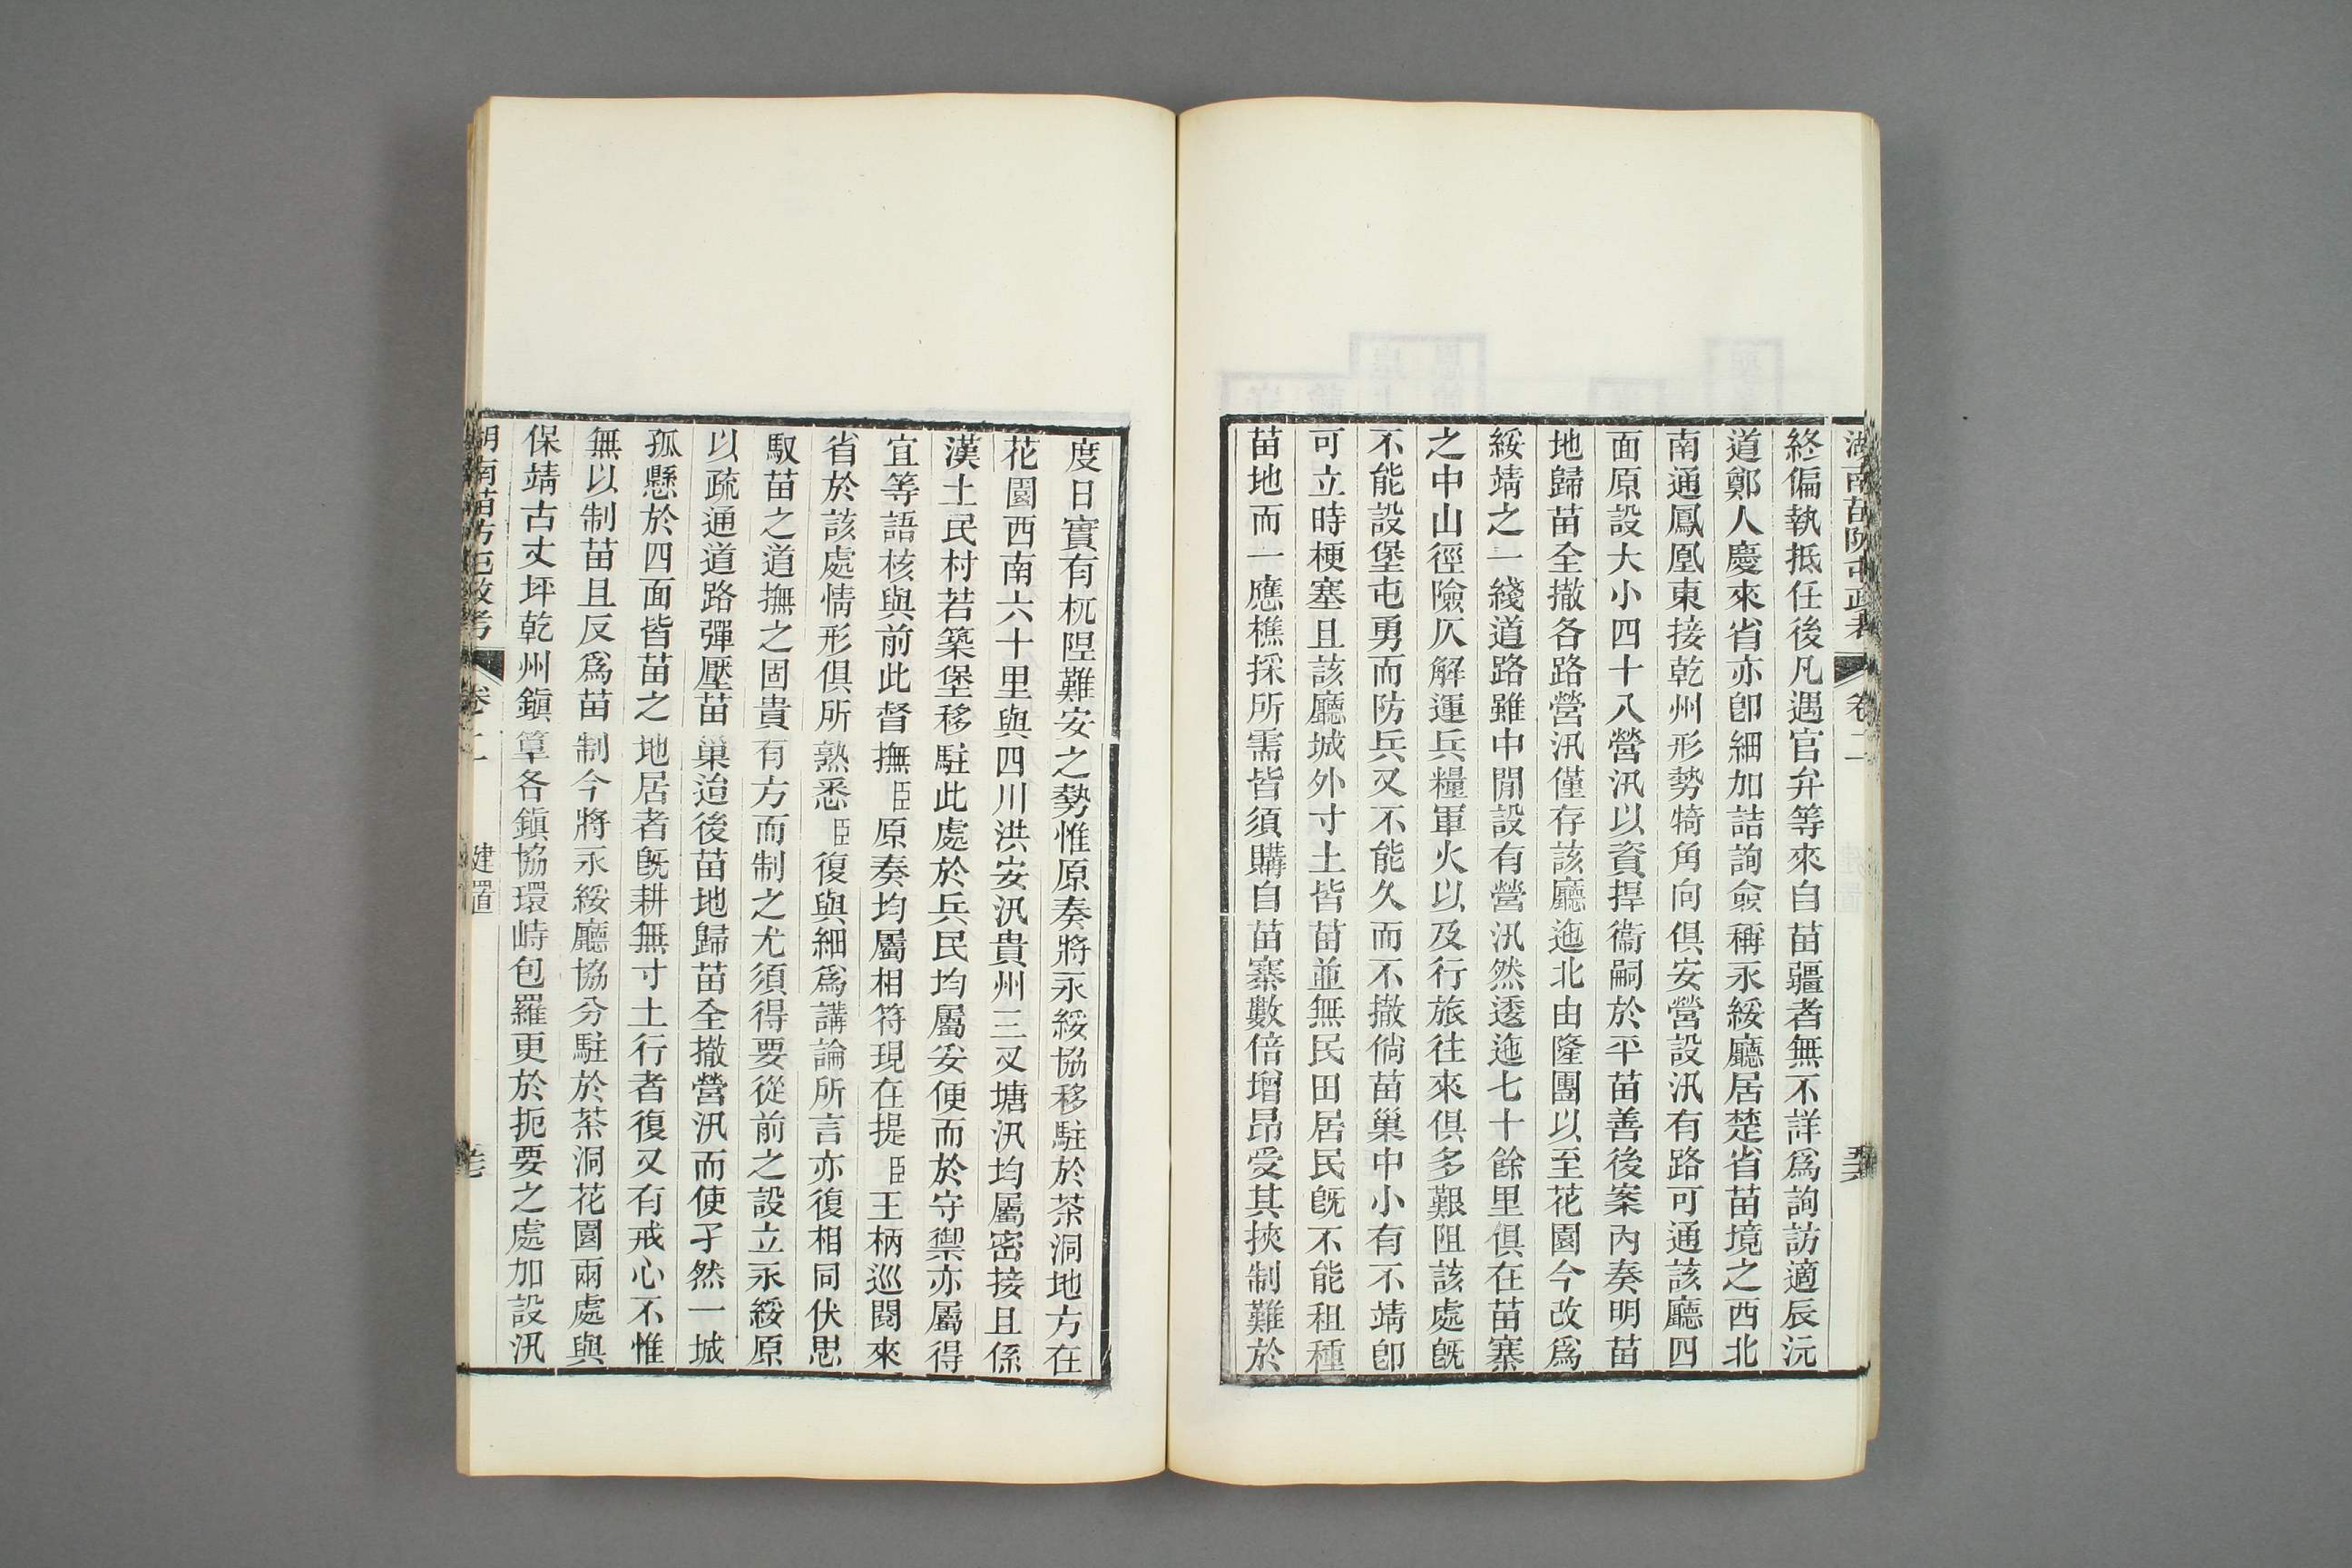 湖南苗防屯政考 卷二 
終偏執抵任後凡遇官弁等來自苗疆者無不詳爲詢訪適辰沅
道鄭人慶來省亦卽細加詰詢僉稱永綏廳居楚省苗境之西北
南通鳳凰東接乾州形勢犄角向俱安營設汛有路可通該廳四
面原設大小四十八營汛以資捍衞嗣於平苗善後案內奏明苗
地歸苗全撤各路營汛僅存該廳迤北由隆團以至花園今改爲
綏靖之一綫道路雖中閒設有營汛然透迤七十餘里俱在苗寨
之中山徑險仄解運兵糧軍火以及行旅往來俱多艱阻該處旣
不能設堡屯勇而防兵又不能久而不撤倘苗巢中小有不靖卽
可立時梗塞且該廳城外寸土皆苗並無民田居民旣不能租種
苗地而一應樵採所需皆須購自苗寨數倍增昂受其挾制難於
度日實有杌隉難安之勢惟原奏將永綏協移駐於茶洞地方在
花園西南六十里與四川洪安汛貴州三又塘汛均屬密接且係
漢土民村若築堡移駐此處於兵民均屬妥便而於守禦亦屬得
宜等語核與前此督撫臣原奏均屬相符現在提臣王柄巡閱來
省於該處情形俱所熟悉臣復與細爲講論所言亦復相同伏思
馭苗之道撫之固貴有方而制之尤須得要從前之設立永綏原
以疏通道路彈壓苗巢迨後苗地歸苗全撤營汛而使孑然一城
孤懸於四面皆苗之地居者旣耕無寸土行者復又有戒心不惟
無以制苗且反爲苗制今將永綏廳協分駐於茶洞花園兩處與
保靖古丈坪乾州鎭筸各鎭協環峙包羅更於扼要之處加設汛
湖南苗防屯政考 卷二 建置